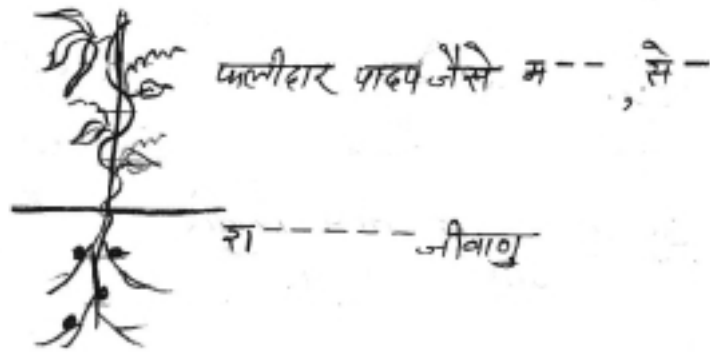 फलीदार पादप जैसे म - - , से -
रा - - - - - जीवाणु